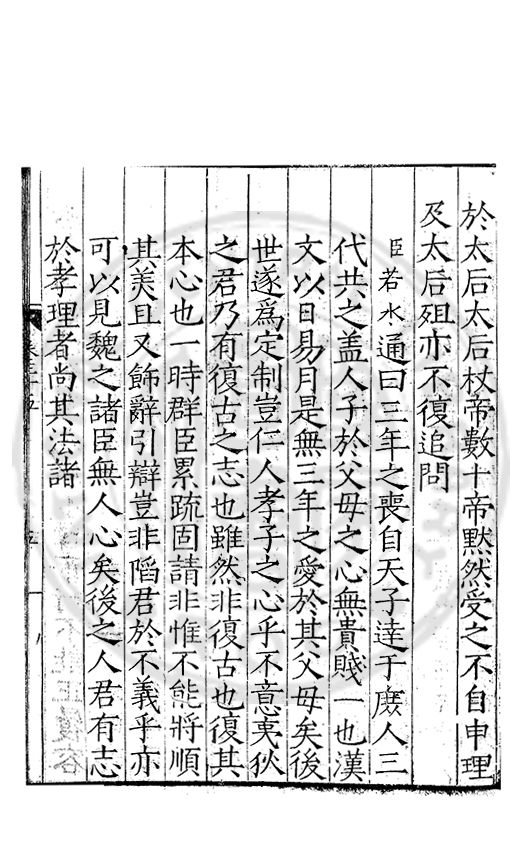 於太后太后杖帝數十帝默然受之不自申理
及太后殂亦不復追問
臣若水通曰三年之喪自天子達于庻人三
代共之盖人子於父母之心無貴賤一也漢
文以日易月是無三年之愛於其父母矣後
世遂爲定制豈仁人孝子之心乎不意夷狄
之君乃有復古之志也雖然非復古也復其
本心也一時群臣累疏固請非惟不能將順
其美且又飾辭引辯豈非䧟君於不義乎亦
可以見魏之諸臣無人心矣後之人君有志
於孝理者尚其法諸